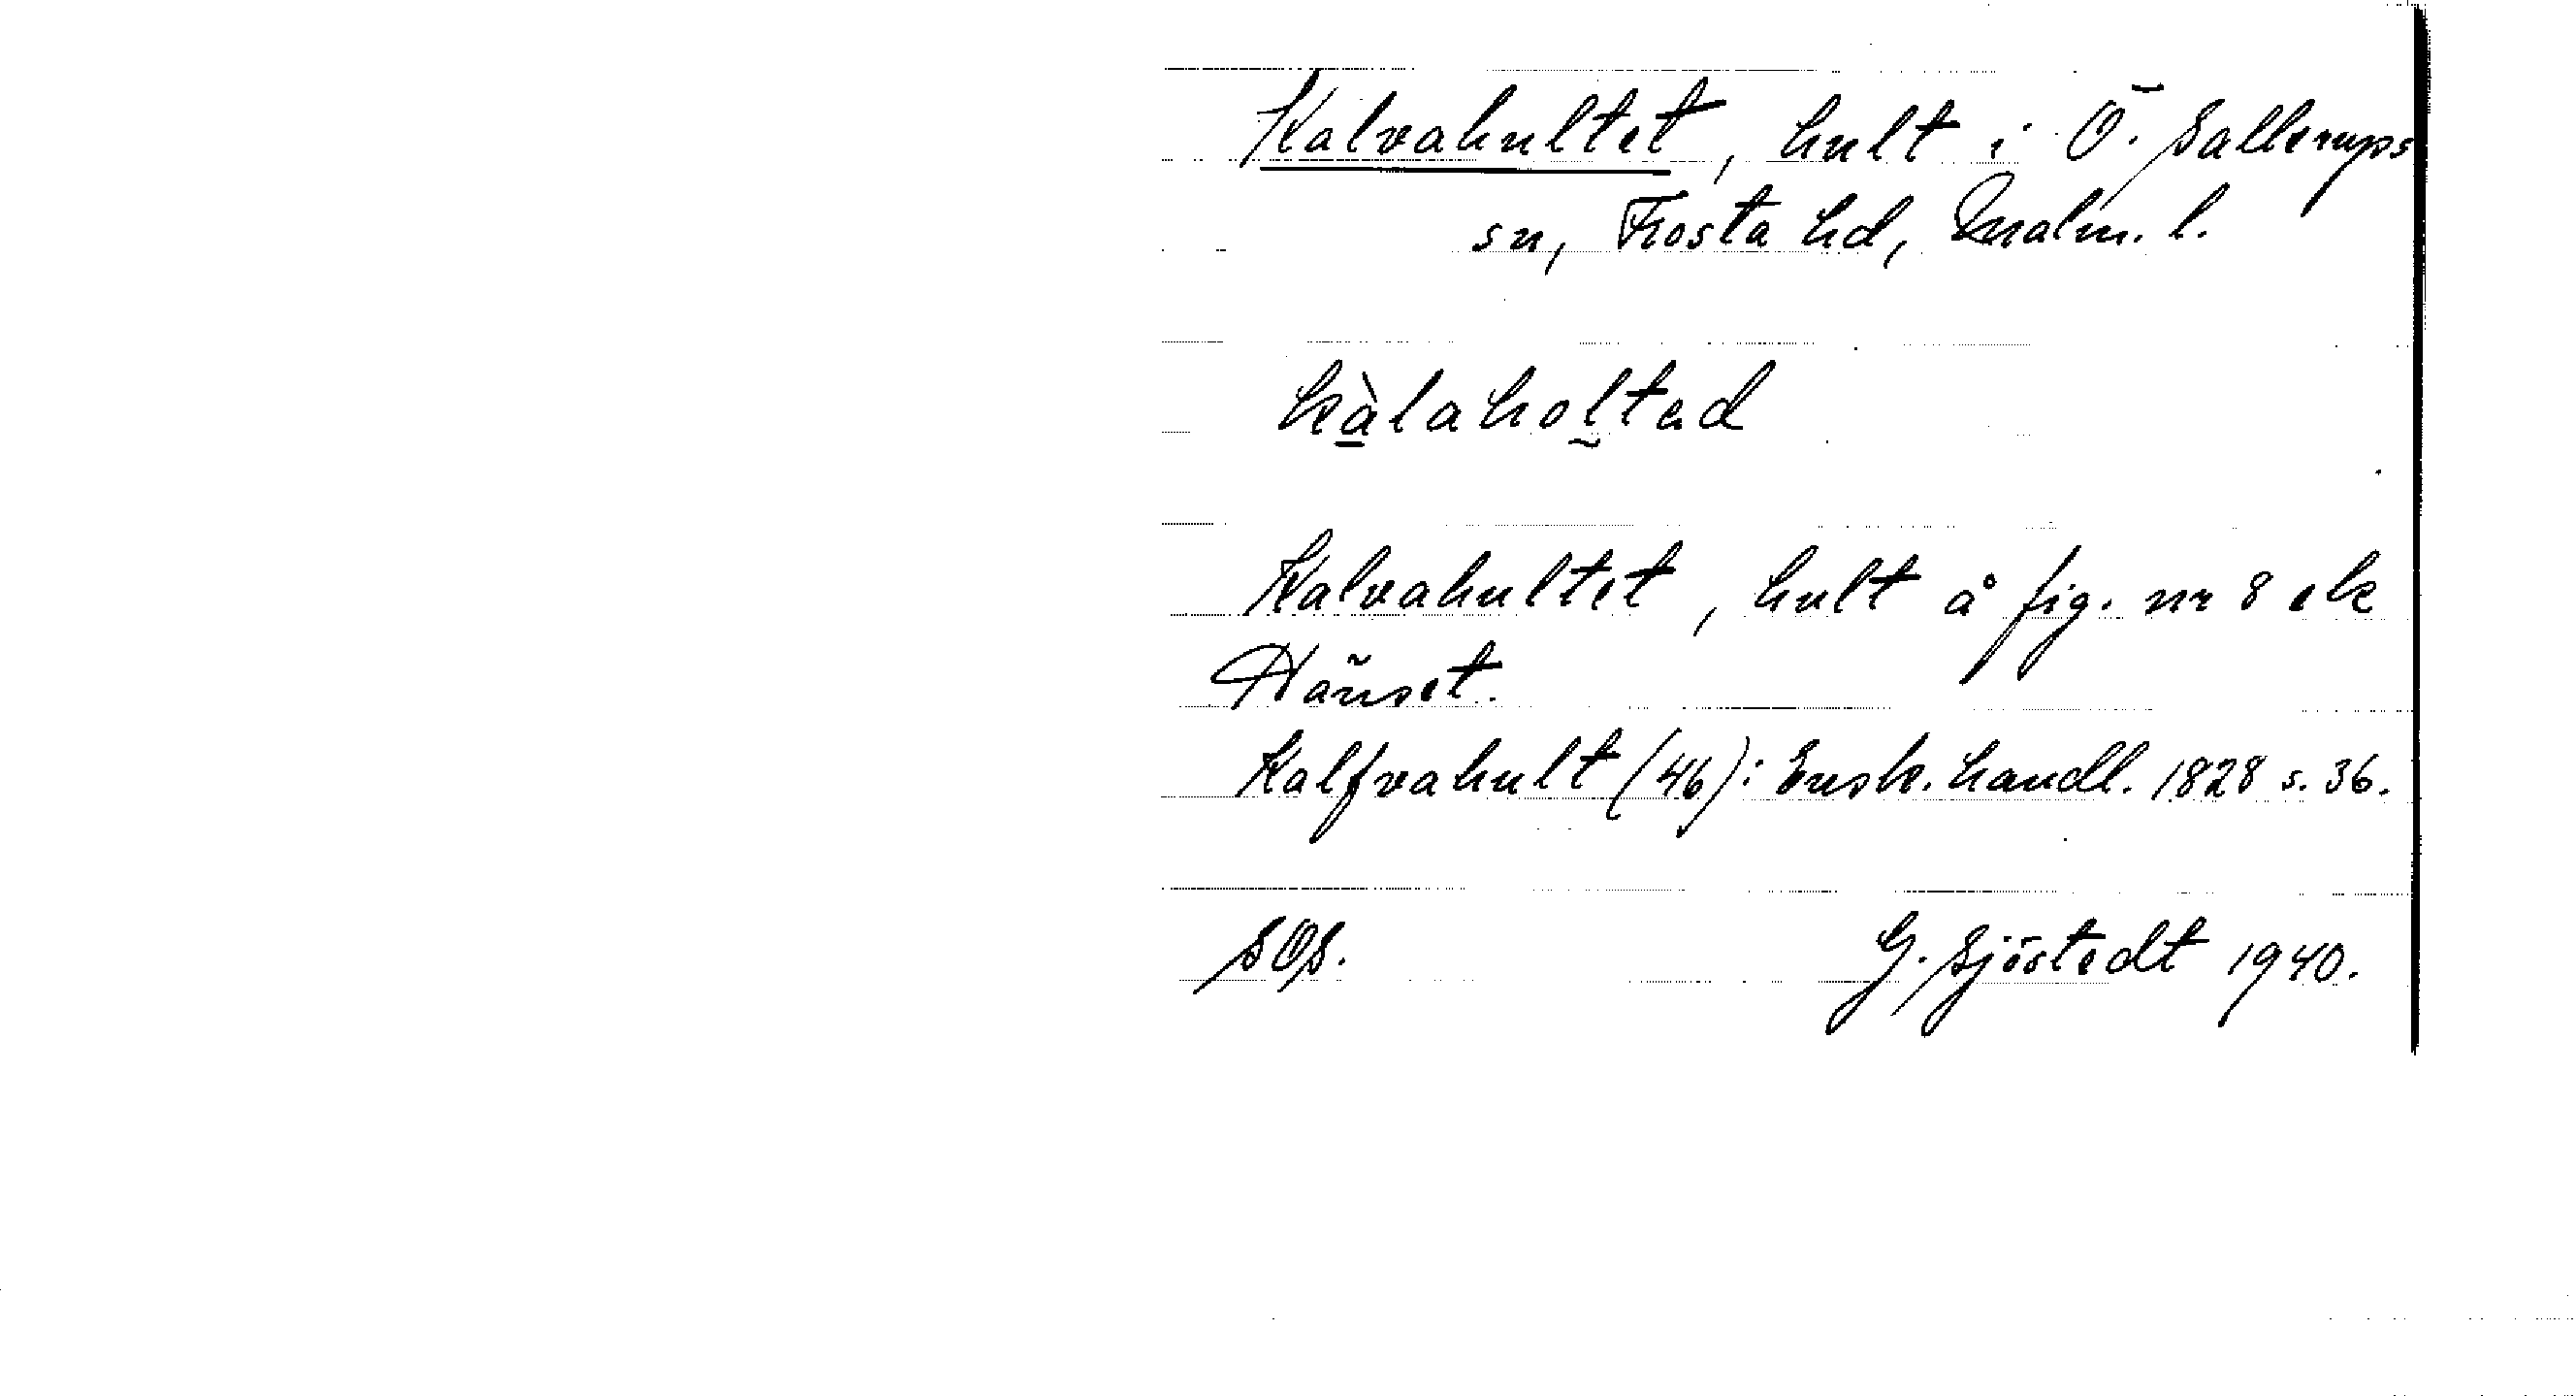 Kalvahultet, hult i Ö. Sallerups
sn, Frosta hd, Malm. l.
kàlaholtəd
Kalvahultet, hult å fig. nr 8 ek
Hänset.
Kalfvahult (46): Ensk. handl. 1828 s. 36.
SOS.
G. Sjöstedt 1940.